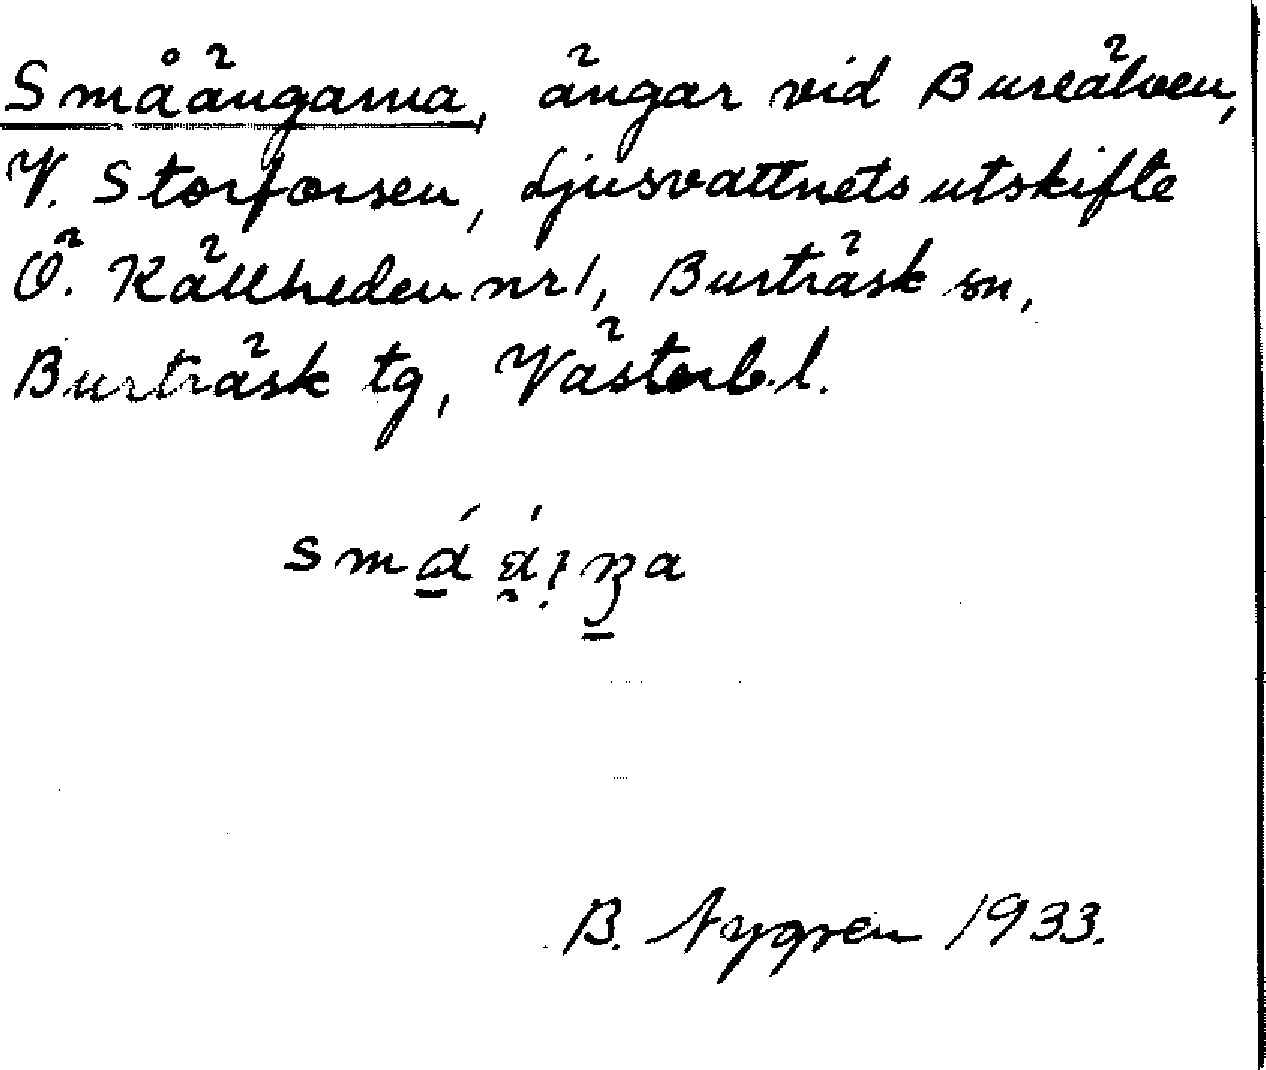 Småängarna, ängar vid Bureälven,
V. Storforsen, Ljusvattnets utskifte
Ö. Källheden nr 1, Burträsk sn,
Burträsk tg, Västerb.l.
B. Nygren 1933.